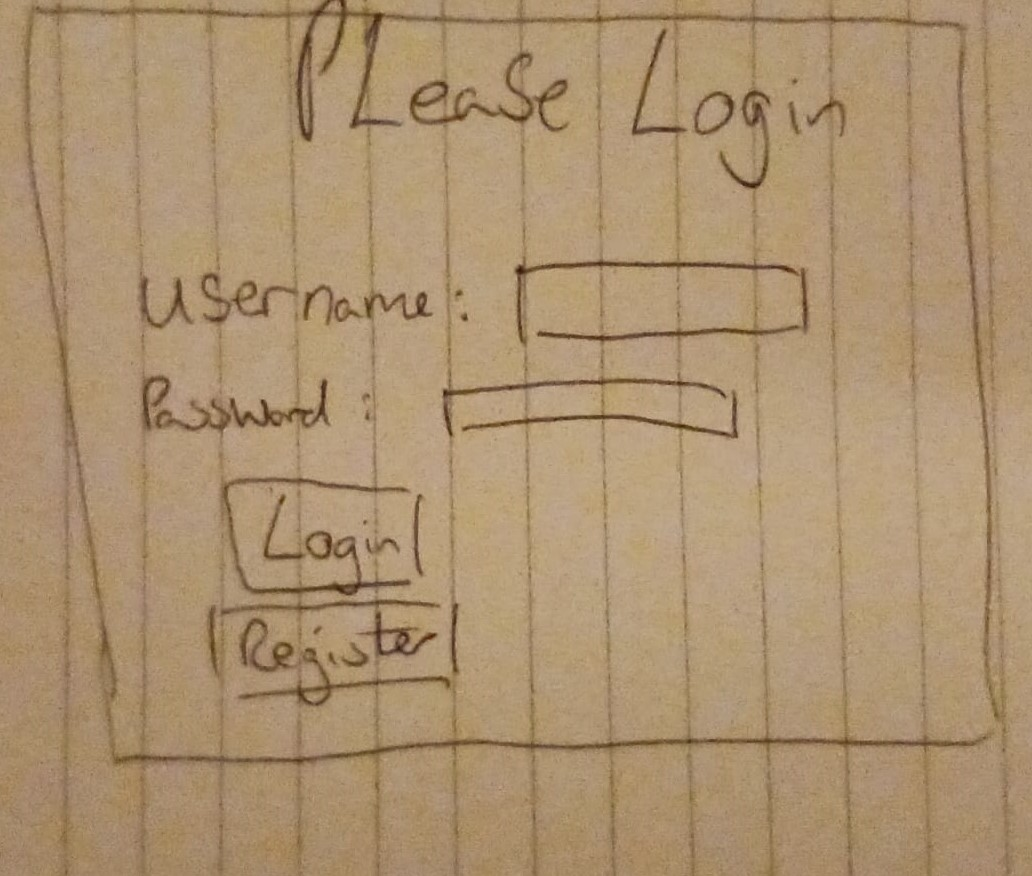 PLease Login
Username:
Password:
Login
Register